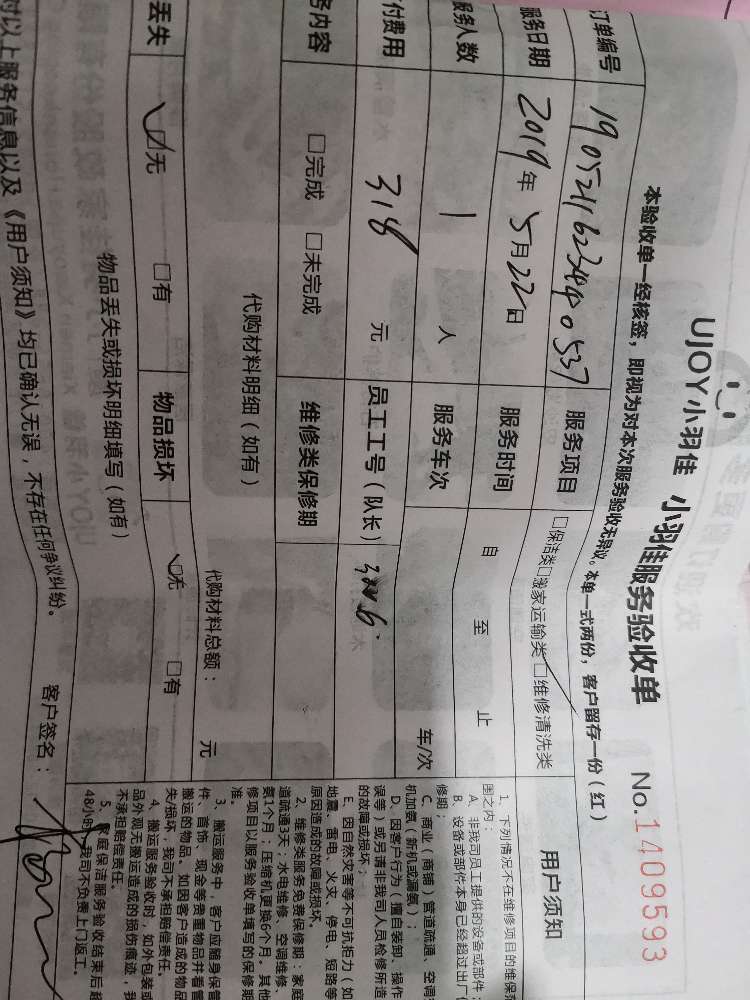 UJOY小羽佳 小羽佳服务验收单 No.1409593
本验收单一经核签，即视为对本次服务验收无异议。本单一式两份，客户留存一份（红）
订单编号
服务项目 □保洁类□搬家运输类□维修清洗类
服务日期 2019年5月22日 服务时间 自 至 止
服务人数 1 人 服务车次 车/次
付费用 318 元 员工工号（队长）
务内容 □完成 □未完成 维修类保修期
代购材料明细（如有） 代购材料总额： 元
丢失 ☑无 □有 物品损坏 ☑无 □有
物品丢失或损坏明细填写（如有）
对以上服务信息以及《用户须知》均已确认无误，不存在任何争议纠纷。 客户签名：
用户须知
1、下列情况不在维修项目的维保范
围之内：
A、非我司员工提供的设备或部件；
B、设备或部件本身已经超过出厂
修期；
C、商业（商铺）管道疏通、空调
机加氨（新机或漏氨）；
D、因客户行为（擅自装卸、操作
误等）或另请非我司人员检修所造
的故障或损坏；
E、因自然灾害等不可抗拒力（如
地震、雷电、火灾、停电、短路等
原因造成的故障或损坏。
2、维修类服务免费保修期：家庭
道疏通3天；水电维修、空调维修、
氨1个月；压缩机更换6个月。其他
修项目以服务验收单填写的保修期
准。
3、搬运服务中，客户应随身保管
件、首饰、现金等贵重物品并看管
搬运的物品。如因客户造成的物品
失/损坏，我司不承担赔偿责任。
4、搬运服务验收时，如外包装或
品外观无搬运造成的损伤痕迹，我
不承担赔偿责任。
5、家庭保洁服务验收结束后超
48小时，我司不负责上门返工。